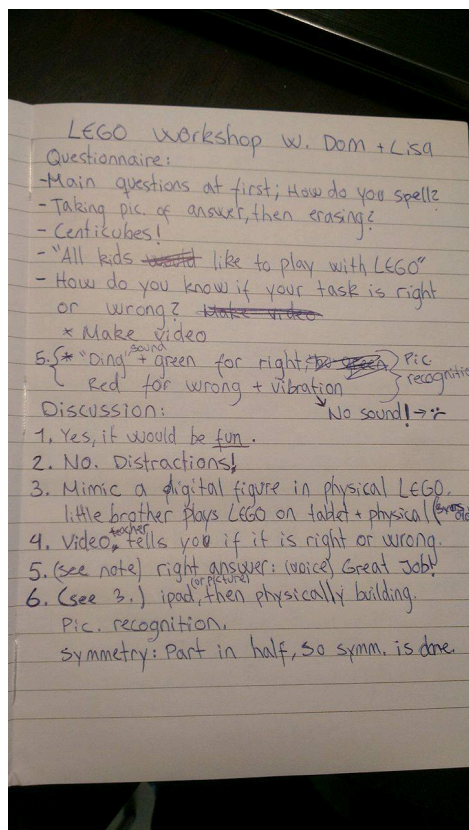 LEGO Workshop w. Dom + Lisa
Questionnaire:
- Main questions at first; How do you spell?
- Taking pic. of answer, then erasing?
- Centicubes!
- "All kids like to play with LEGO"
- How do you know if your task is right
or wrong? Make video
* Make video
5. * "Ding" sound + green for right, Pic recognition
Red for wrong + vibration
No sound! →
Discussion:
1. Yes, it would be fun.
2. No. Distractions!
3. Mimic a digital figure in physical LEGO.
little brother plays LEGO on tablet + physical (5 yrs old)
4. Video, teacher tells you if it is right or wrong.
5. (see note) right answer: (voice) Great Job!
6. (see 3.) ipad (or picture), then physically building.
Pic. recognition.
Symmetry: Part in half, so symm. is done.